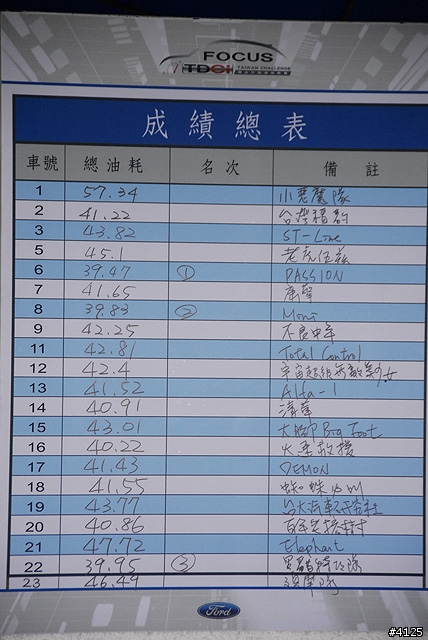 FOCUS
TDCi TAIWAN CHALLENGE
成績總表
車號 總油耗 名次 備註
1 57.34 小惡魔隊
2 41.22 台灣精韵
3 43.82 ST-Line
5 45.1 老虎伍茲
6 39.47 ① PASSION
7 41.65 唐聲
8 39.83 ② Moni
9 42.25 不良中年
11 42.81 Total Control
12 42.4 宇宙超級無敵美少女
13 41.52 Alfa-1
14 40.91 清華
15 43.01 大腳Big Foot
16 40.22 火車救援
17 41.43 DEMON
18 41.55 蜘蛛
19 43.77 台大汽車
20 40.86
21 47.72 Elephant
22 39.95 ③
23 46.49
Ford
#4125